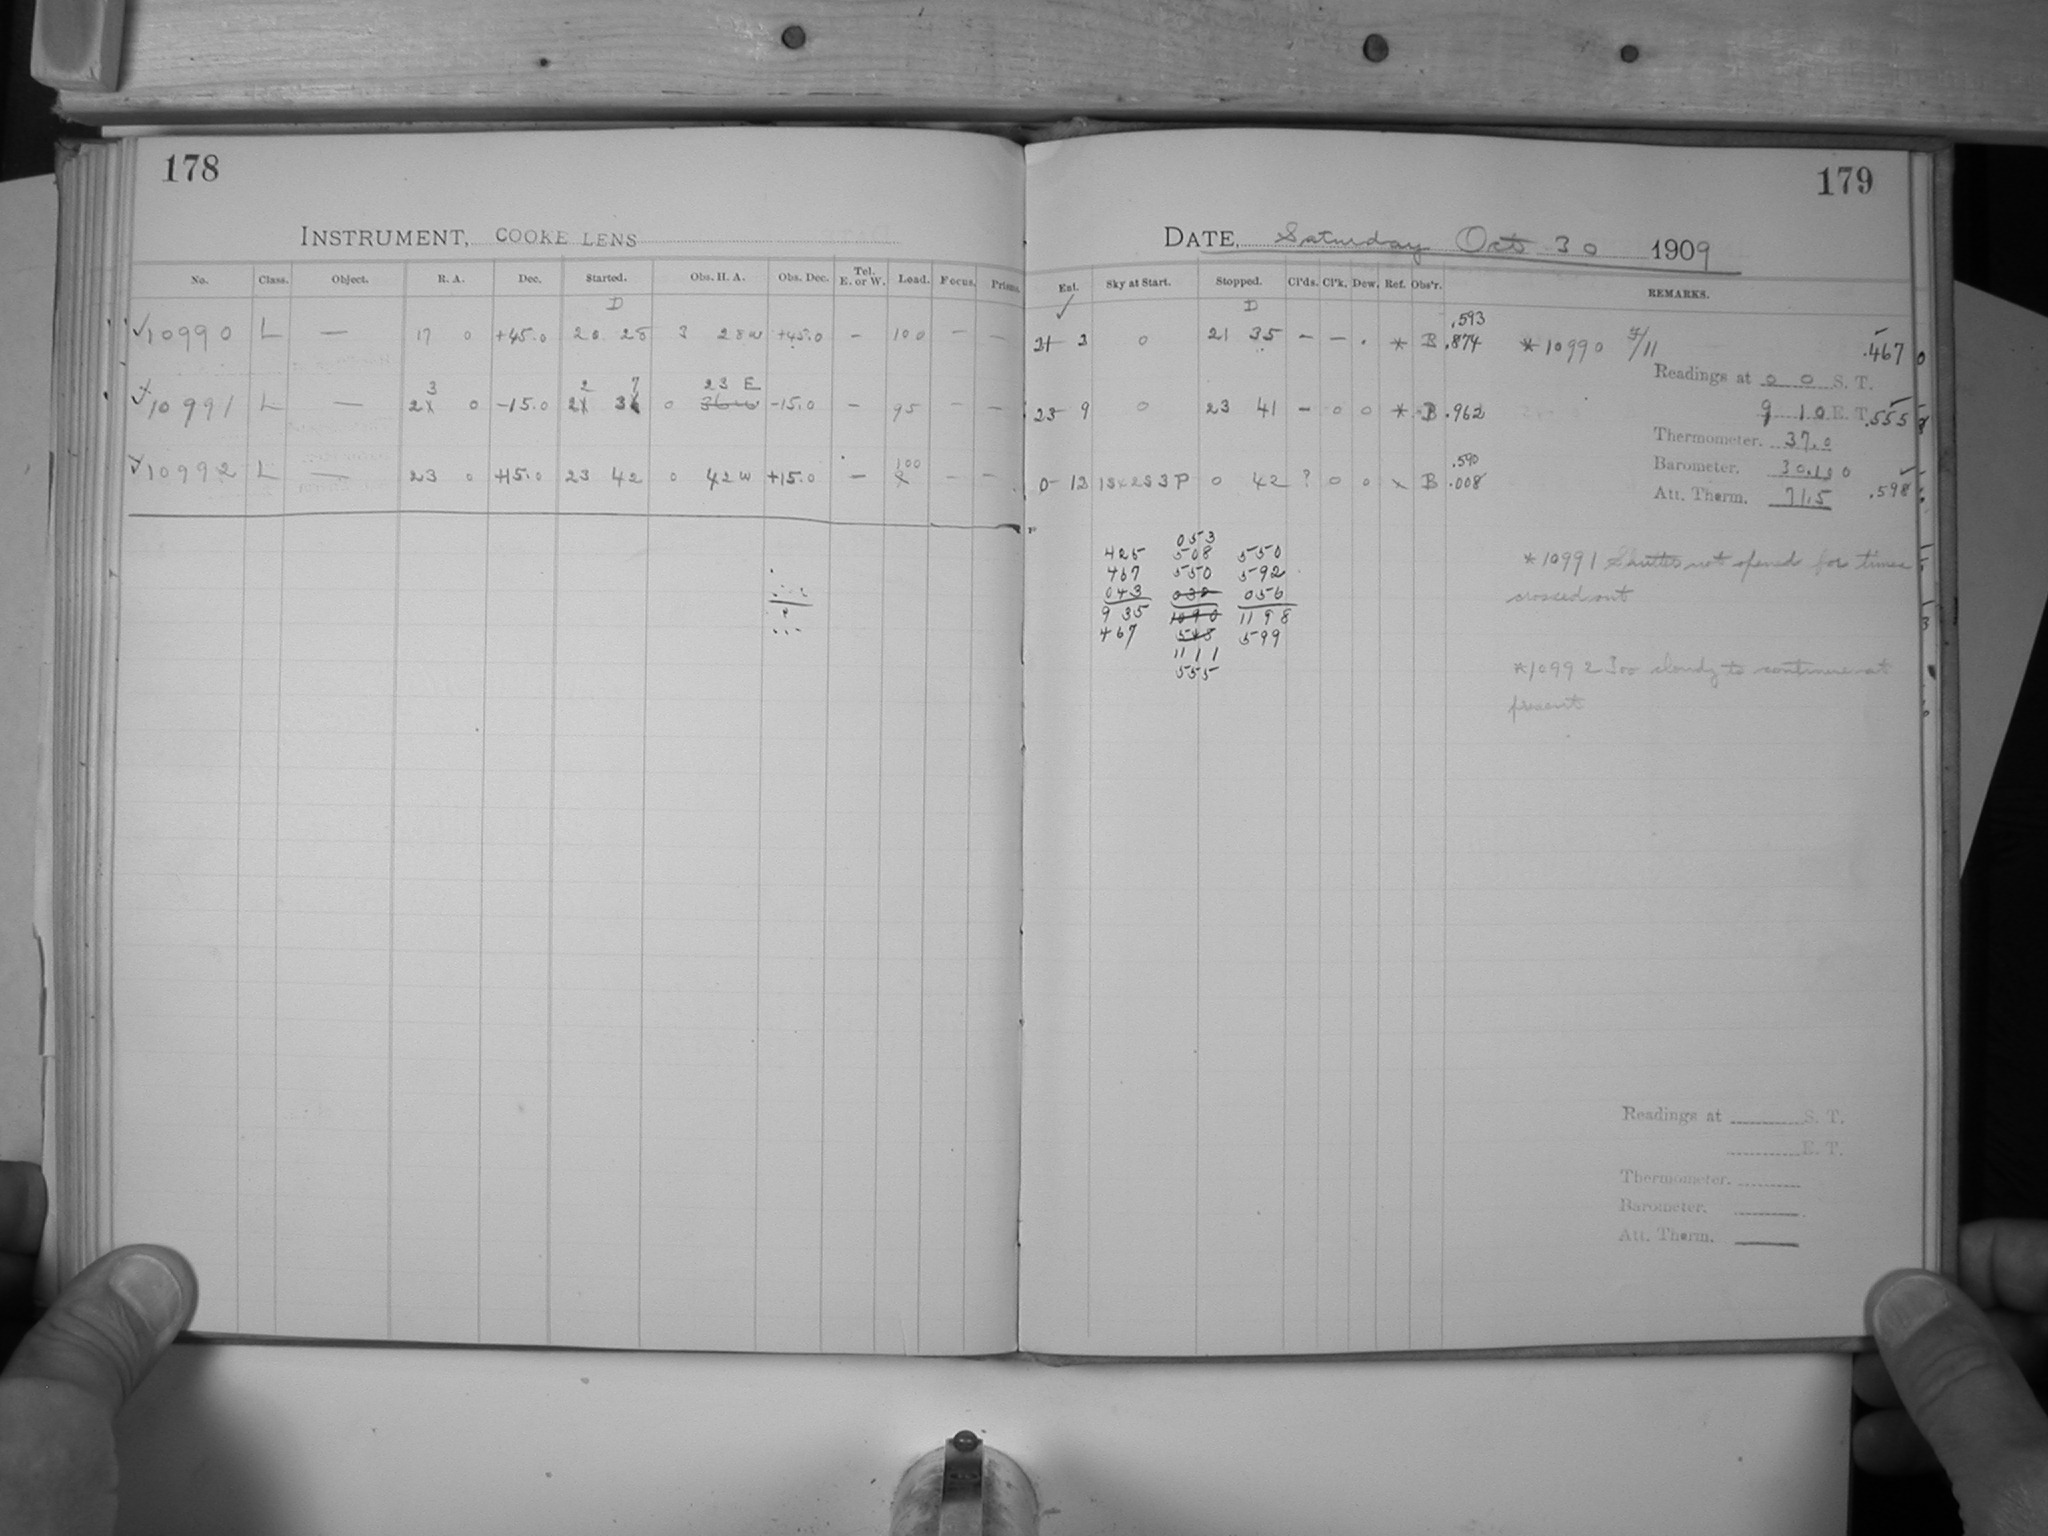 178
INSTRUMENT, COOKE LENS
No. Class. Object. R. A. Dec. Started. Obs. H. A. Obs. Dec. Tel. E. or W. Load. Focus. Prisms.
D
✓10990 L — 17 0 +45.0 20 25 3 28w +45.0 — 100 — —
3 2 7 23 E
10991 L — 2 0 -15.0 2 3 0 36 w -15.0 — 95 — —
100
10992 L — 23 0 +15.0 23 42 0 42w +15.0 — — —
179
DATE, Saturday Oct 30 1909
Ext. Sky at Start. Stopped. Cl'ds. Cl'k. Dew. Ref. Obs'r. REMARKS.
✓ D
.593
3 0 21 35 — — . * B .874 *10990 .467
Readings at 0 0 S. T.
23 9 0 23 41 — 0 0 * B .962 9 10 E. T. .555
Thermometer. 37.0
.590
Barometer. 30.130
0 13 1S x 2S 3P 0 42 ? 0 0 x B .008
Att. Therm. 71.5 .598
053
425 508 550
467 550 592
043 056
935 1090 1198
467 545 599
1111
555
*10991 Shutter not opened for times
crossed out
*10992 Too cloudy to continue at
present
Readings at S. T.
E. T.
Thermometer.
Barometer.
Att. Therm.